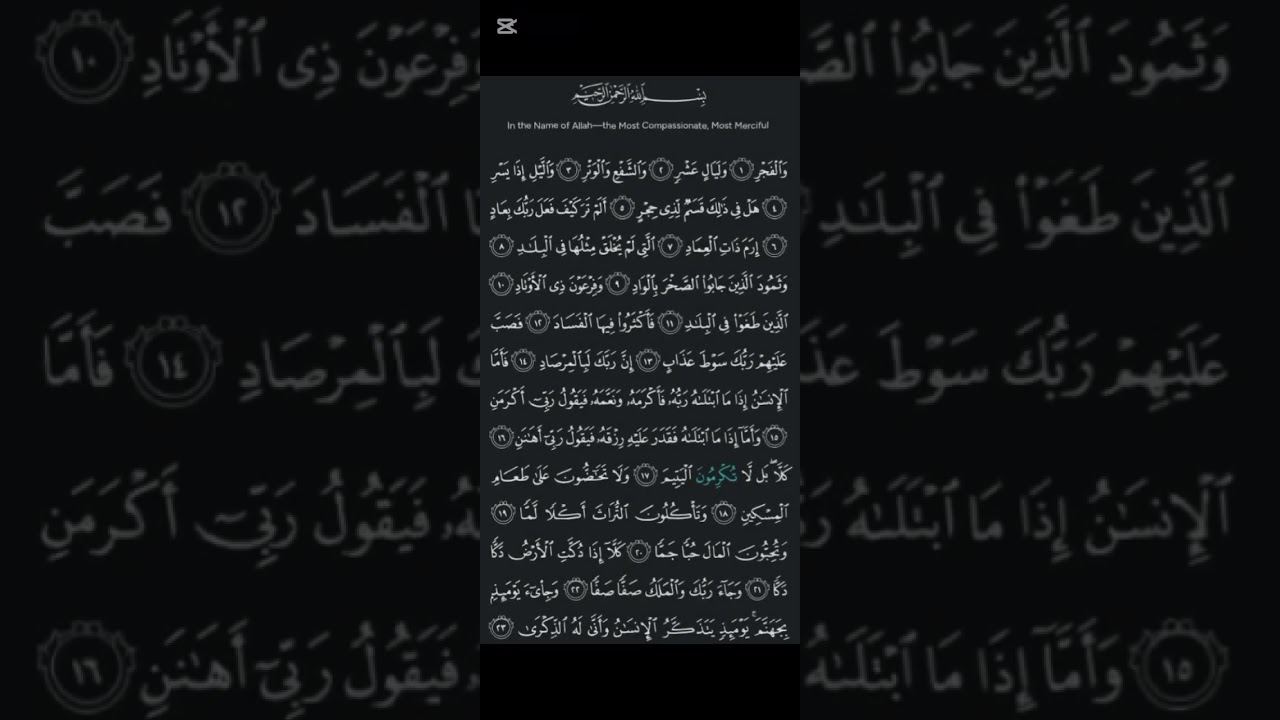 بِسْمِ ٱللَّهِ ٱلرَّحْمَٰنِ ٱلرَّحِيمِ
In the Name of Allah—the Most Compassionate, Most Merciful
وَٱلْفَجْرِ ١ وَلَيَالٍ عَشْرٍ ٢ وَٱلشَّفْعِ وَٱلْوَتْرِ ٣ وَٱلَّيْلِ إِذَا يَسْرِ
٤ هَلْ فِى ذَٰلِكَ قَسَمٌ لِّذِى حِجْرٍ ٥ أَلَمْ تَرَ كَيْفَ فَعَلَ رَبُّكَ بِعَادٍ
٦ إِرَمَ ذَاتِ ٱلْعِمَادِ ٧ ٱلَّتِى لَمْ يُخْلَقْ مِثْلُهَا فِى ٱلْبِلَـٰدِ ٨
وَثَمُودَ ٱلَّذِينَ جَابُوا۟ ٱلصَّخْرَ بِٱلْوَادِ ٩ وَفِرْعَوْنَ ذِى ٱلْأَوْتَادِ ١٠
ٱلَّذِينَ طَغَوْا۟ فِى ٱلْبِلَـٰدِ ١١ فَأَكْثَرُوا۟ فِيهَا ٱلْفَسَادَ ١٢ فَصَبَّ
عَلَيْهِمْ رَبُّكَ سَوْطَ عَذَابٍ ١٣ إِنَّ رَبَّكَ لَبِٱلْمِرْصَادِ ١٤ فَأَمَّا
ٱلْإِنسَـٰنُ إِذَا مَا ٱبْتَلَىٰهُ رَبُّهُۥ فَأَكْرَمَهُۥ وَنَعَّمَهُۥ فَيَقُولُ رَبِّىٓ أَكْرَمَنِ
١٥ وَأَمَّآ إِذَا مَا ٱبْتَلَىٰهُ فَقَدَرَ عَلَيْهِ رِزْقَهُۥ فَيَقُولُ رَبِّىٓ أَهَـٰنَنِ ١٦
كَلَّا ۖ بَل لَّا تُكْرِمُونَ ٱلْيَتِيمَ ١٧ وَلَا تَحَـٰٓضُّونَ عَلَىٰ طَعَامِ
ٱلْمِسْكِينِ ١٨ وَتَأْكُلُونَ ٱلتُّرَاثَ أَكْلًا لَّمًّا ١٩
وَتُحِبُّونَ ٱلْمَالَ حُبًّا جَمًّا ٢٠ كَلَّآ إِذَا دُكَّتِ ٱلْأَرْضُ دَكًّا
دَكًّا ٢١ وَجَآءَ رَبُّكَ وَٱلْمَلَكُ صَفًّا صَفًّا ٢٢ وَجِا۟ىٓءَ يَوْمَئِذٍۭ
بِجَهَنَّمَ ۚ يَوْمَئِذٍ يَتَذَكَّرُ ٱلْإِنسَـٰنُ وَأَنَّىٰ لَهُ ٱلذِّكْرَىٰ ٢٣